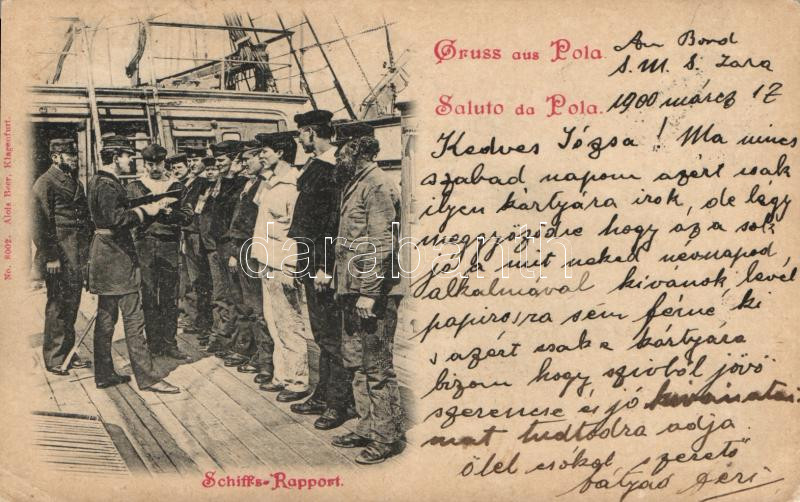 Gruss aus Pola.
Saluto da Pola.
An Bord
S. M. S. Zara
1900 márcz 17
Kedves Józsa! Ma nincs
szabad napom azért csak
ilyen kártyára irok, de légy
meggyőződve hogy az a sok
jó a mit neked névnapod
alkalmával kivánok levél
papirosra sem férne ki
s azért csak e kártyára
bizom hogy szivből jövő
szerencse és jó kivánatai-
mat tudtodra adja.
ölel csókol szerető
bátyád Géri
Schiffs-Rapport.
No. 8002. Alois Beer, Klagenfurt.
darabanth